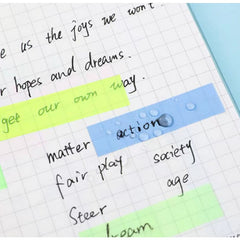 e us the joys we won't
r hopes and dreams.
get our own way.
matter action
fair play society
age
Steer